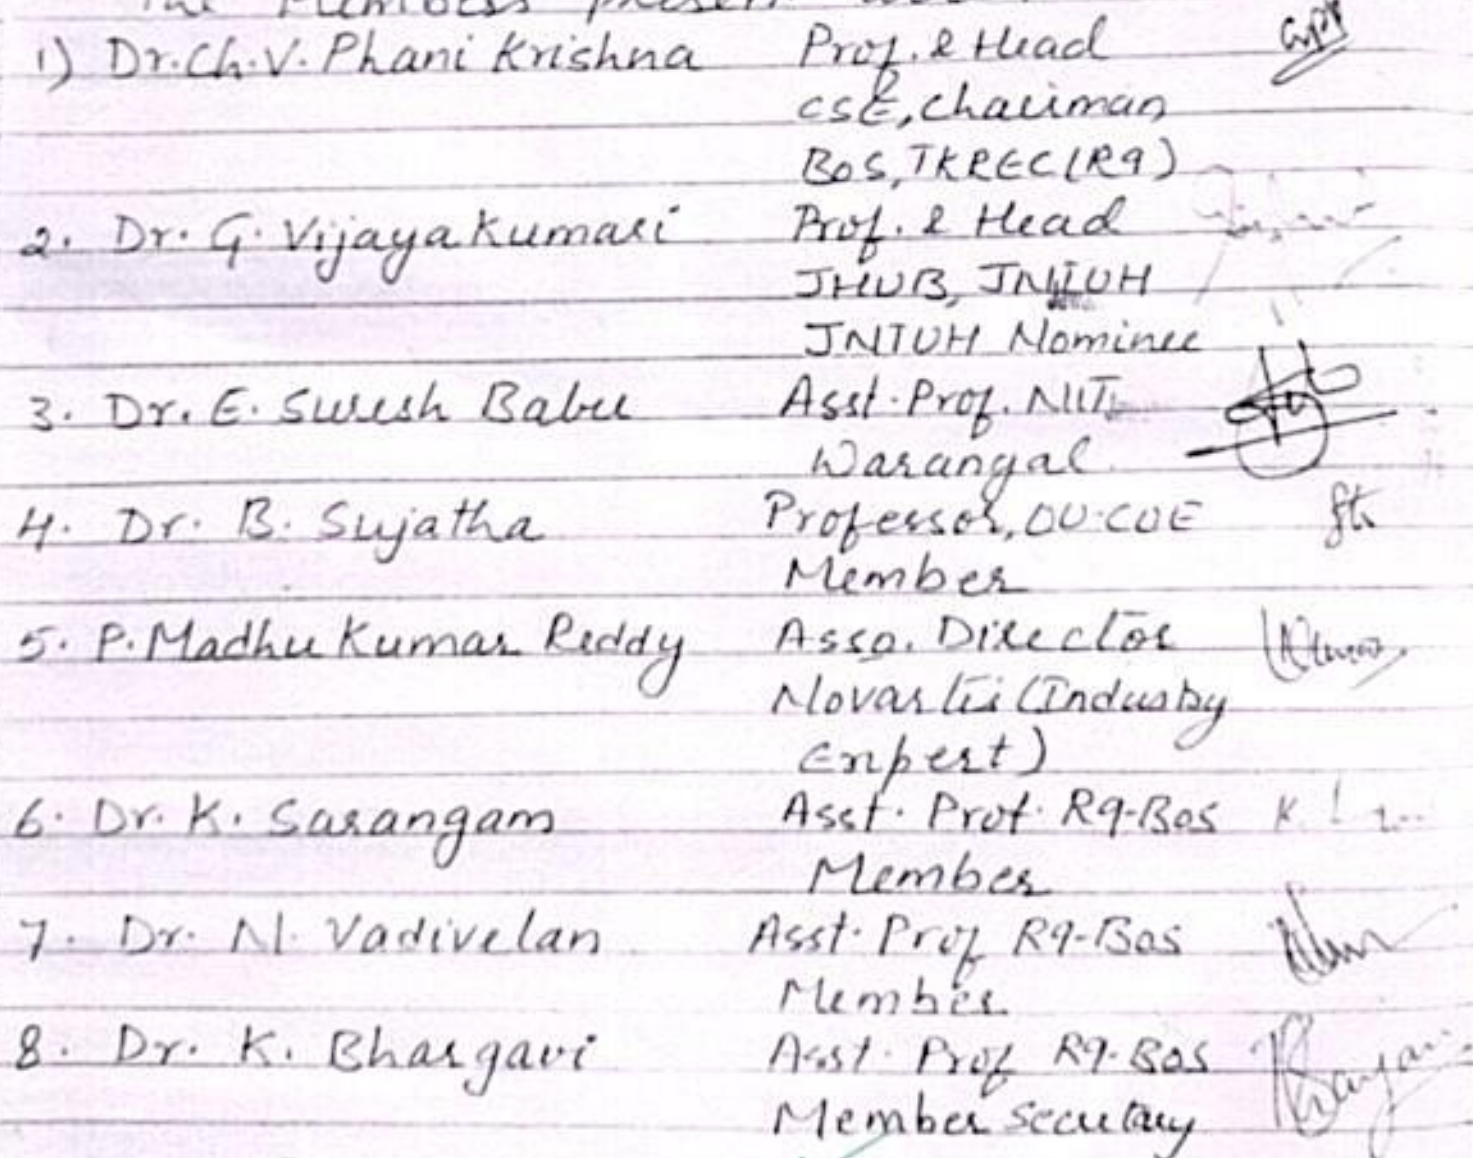 The Members present
1) Dr.Ch.V. Phani Krishna Prof. & Head
CSE, Chairman
BoS, TKREC(R9)
2. Dr. G. Vijaya Kumari Prof. & Head
JHUB, JNTUH
JNTUH Nominee
3. Dr. E. Suresh Babu Asst. Prof. NIT,
Warangal
4. Dr. B. Sujatha Professor, OU-COE
Member
5. P. Madhu Kumar Reddy Asso. Director
Novartis (Industry
Expert)
6. Dr. K. Sarangam Asst. Prof. R9-BoS
Member
7. Dr. N. Vadivelan Asst. Prof R9-BoS
Member
8. Dr. K. Bhargavi Asst. Prof R9-BoS
Member Secretary